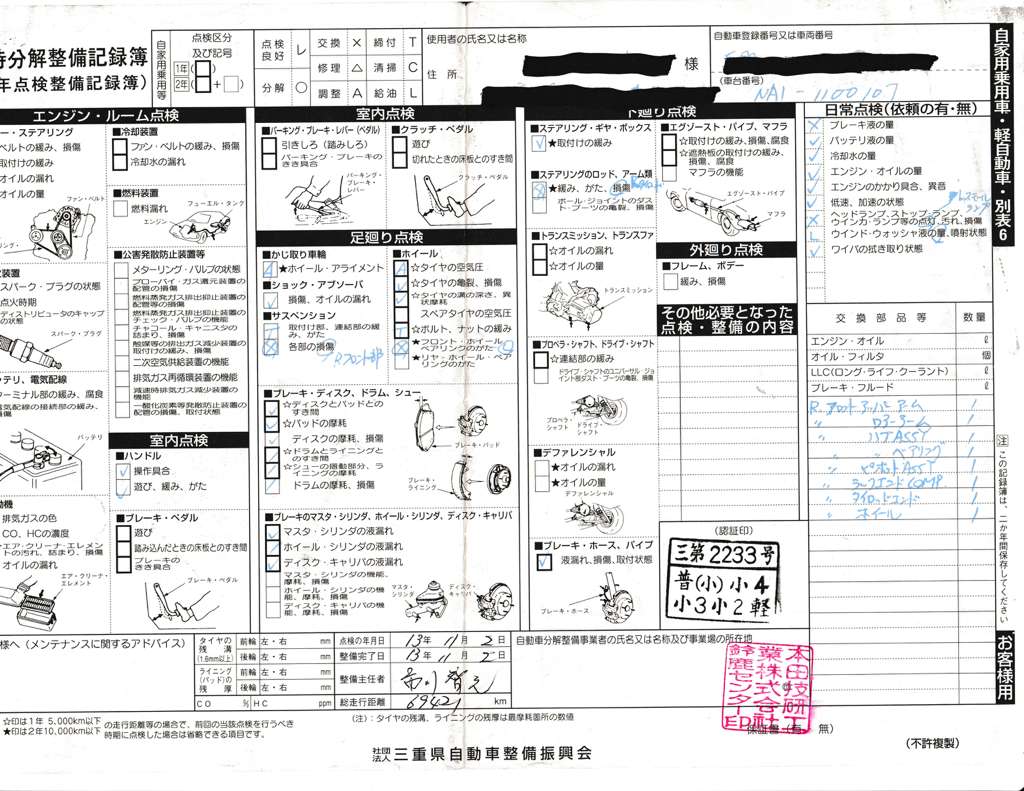 時分解整備記録簿
年点検整備記録簿)
自家用乗用等
点検区分
及び記号
1年
2年 +
点検良好 レ 交換 × 締付 T
修理 △ 清掃 C
分解 ○ 調整 A 給油 L
使用者の氏名又は名称
様
住所
自動車登録番号又は車両番号
(車台番号)
NA1-1100107
自家用乗用車・軽自動車・別表6
エンジン・ルーム点検
ー・ステアリング
ベルトの緩み、損傷
取付けの緩み
オイルの漏れ
オイルの量
ファン・ベルト
装置
スパーク・プラグの状態
点火時期
ディストリビュータのキャップの状態
スパーク・プラグ
テリ、電気配線
ターミナル部の緩み、腐食
電気配線の接続部の緩み、損傷
バッテリ
動機
排気ガスの色
CO、HCの濃度
エア・クリーナ・エレメントの汚れ、詰まり、損傷
オイルの漏れ
エア・クリーナ・エレメント
■冷却装置
ファン・ベルトの緩み、損傷
冷却水の漏れ
■燃料装置
燃料漏れ
フューエル・タンク
エンジン
■公害発散防止装置等
メターリング・バルブの状態
ブローバイ・ガス還元装置の配管の損傷
燃料蒸発ガス排出抑止装置の配管等の損傷
燃料蒸発ガス排出抑止装置のチェック・バルブの機能
チャコール・キャニスタの詰まり、損傷
触媒等の排出ガス減少装置の取付けの緩み、損傷
二次空気供給装置の機能
排気ガス再循環装置の機能
減速時排気ガス減少装置の機能
一酸化炭素等発散防止装置の配管の損傷、取付状態
室内点検
■ハンドル
操作具合
遊び、緩み、がた
■ブレーキ・ペダル
遊び
踏み込んだときの床板とのすき間
ブレーキのきき具合
ブレーキ・ペダル
室内点検
■パーキング・ブレーキ・レバー(ペダル)
引きしろ(踏みしろ)
パーキング・ブレーキのきき具合
パーキング・ブレーキ・レバー
■クラッチ・ペダル
遊び
切れたときの床板とのすき間
クラッチ・ペダル
足廻り点検
■かじ取り車輪
★ホイール・アライメント
■ショック・アブソーバ
損傷、オイルの漏れ
■サスペンション
取付け部、連結部の緩み、がた
各部の損傷
Rフロント部
■ホイール
☆タイヤの空気圧
☆タイヤの亀裂、損傷
☆タイヤの溝の深さ、異状摩耗
スペアタイヤの空気圧
☆ボルト、ナットの緩み
★フロント・ホイール・ベアリングのがた
★リヤ・ホイール・ベアリングのがた
■ブレーキ・ディスク、ドラム、シュー
☆ディスクとパッドとのすき間
☆パッドの摩耗
ディスクの摩耗、損傷
☆ドラムとライニングとのすき間
☆シューの摺動部分、ライニングの摩耗
ドラムの摩耗、損傷
ブレーキ・パッド
ブレーキ・ライニング
■ブレーキのマスタ・シリンダ、ホイール・シリンダ、ディスク・キャリパ
マスタ・シリンダの液漏れ
ホイール・シリンダの液漏れ
ディスク・キャリパの液漏れ
マスタ・シリンダの機能、摩耗、損傷
ホイール・シリンダの機能、摩耗、損傷
ディスク・キャリパの機能、摩耗、損傷
マスタ・シリンダ
ディスク・キャリパ
下廻り点検
■ステアリング・ギヤ・ボックス
☆取付けの緩み
■ステアリングのロッド、アーム類
★緩み、がた、損傷
ボール・ジョイントのダスト・ブーツの亀裂、損傷
■トランスミッション、トランスファ
☆オイルの漏れ
☆オイルの量
トランスミッション
■プロペラ・シャフト、ドライブ・シャフト
☆連結部の緩み
ドライブ・シャフトのユニバーサル・ジョイント部ダスト・ブーツの亀裂、損傷
プロペラ・シャフト
ドライブ・シャフト
■デファレンシャル
★オイルの漏れ
★オイルの量
デファレンシャル
■ブレーキ・ホース、パイプ
液漏れ、損傷、取付状態
ブレーキ・ホース
■エグゾースト・パイプ、マフラ
☆取付けの緩み、損傷、腐食
☆遮熱板の取付けの緩み、損傷、腐食
マフラの機能
エグゾースト・パイプ
マフラ
外廻り点検
■フレーム、ボデー
緩み、損傷
その他必要となった
点検・整備の内容
(認証印)
三第2233号
普(小)小4
小3小2軽
日常点検(依頼の有・無)
ブレーキ液の量
バッテリ液の量
冷却水の量
エンジン・オイルの量
エンジンのかかり具合、異音
低速、加速の状態
ヘッドランプ、ストップ・ランプ、ウインカ・ランプ等の点灯、汚れ、損傷
ウインド・ウォッシャ液の量、噴射状態
ワイパの拭き取り状態
交換部品等 数量
エンジン・オイル ℓ
オイル・フィルタ 個
LLC(ロング・ライフ・クーラント) ℓ
ブレーキ・フルード ℓ
R.フロントアッパーアーム 1
〃 ロアーアーム 1
〃 ハブASSY 1
〃 〃 ベアリング 1
〃 ピボットASSY 1
〃 ラックエンドCOMP 1
〃 タイロッドエンド 1
〃 ホイール 1
注 この記録簿は、二か年間保存してください
お客様用
様へ(メンテナンスに関するアドバイス)
タイヤの残溝(1.6mm以上) 前輪 左・右 mm
後輪 左・右 mm
ライニング(パッド)の残厚 前輪 左・右 mm
後輪 左・右 mm
CO % HC ppm
点検の年月日 13年 11月 2日
整備完了日 13年 11月 2日
整備主任者
総走行距離 69421 km
自動車分解整備事業者の氏名又は名称及び事業場の所在地
本田技研工業株式会社鈴鹿センターED
保証書(有 無)
☆印は1年 5,000km以下
★印は2年10,000km以下
の走行距離等の場合で、前回の当該点検を行うべき時期に点検した場合は省略できる項目です。
(注):タイヤの残溝、ライニングの残厚は最摩耗箇所の数値
社団法人 三重県自動車整備振興会
(不許複製)